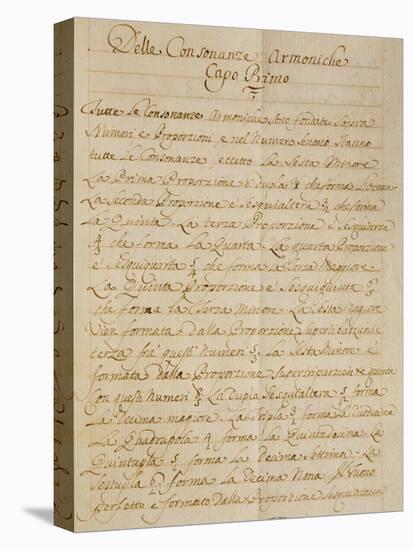 Delle Consonanze Armoniche
Capo Primo
Tutte le Consonanze Armoniche sono fondate sopra
Numeri e Proporzioni, e nel Numero Senario stanno
tutte le Consonanze eccetto la Sesta Minore
La Prima Proporzione è Dupla che forma l'Ottava
La Seconda Proporzione è Sesquialtera che forma
la Quinta. La terza Proporzione è Sesquiterza
4/3 che forma la Quarta. La quarta Proporzione
è Sesquiquarta 5/4 che forma la Terza Maggiore
La Quinta Proporzione è Sesquiquinta 6/5
che forma la Terza Minore. La Sesta Magiore
vien formata dalla Proporzione Superbiparziente
terza frà questi Numeri 5/3 la Sesta Minore è
formata dalla Proporzione quinta
con questi Numeri 8/5 La Dupla Sesquialtera 5/2 forma
la Decima magiore. La Tripla 3/1 forma la Duodecima
La Quadrupola 4 forma la Quintadecima. La
Quintupla 5/1 forma la Decima Settima. La
Sestupla 6/1 forma la Decima Nona. Il Tuono
perfetto è formato dalla Proporzione Sesquiottava